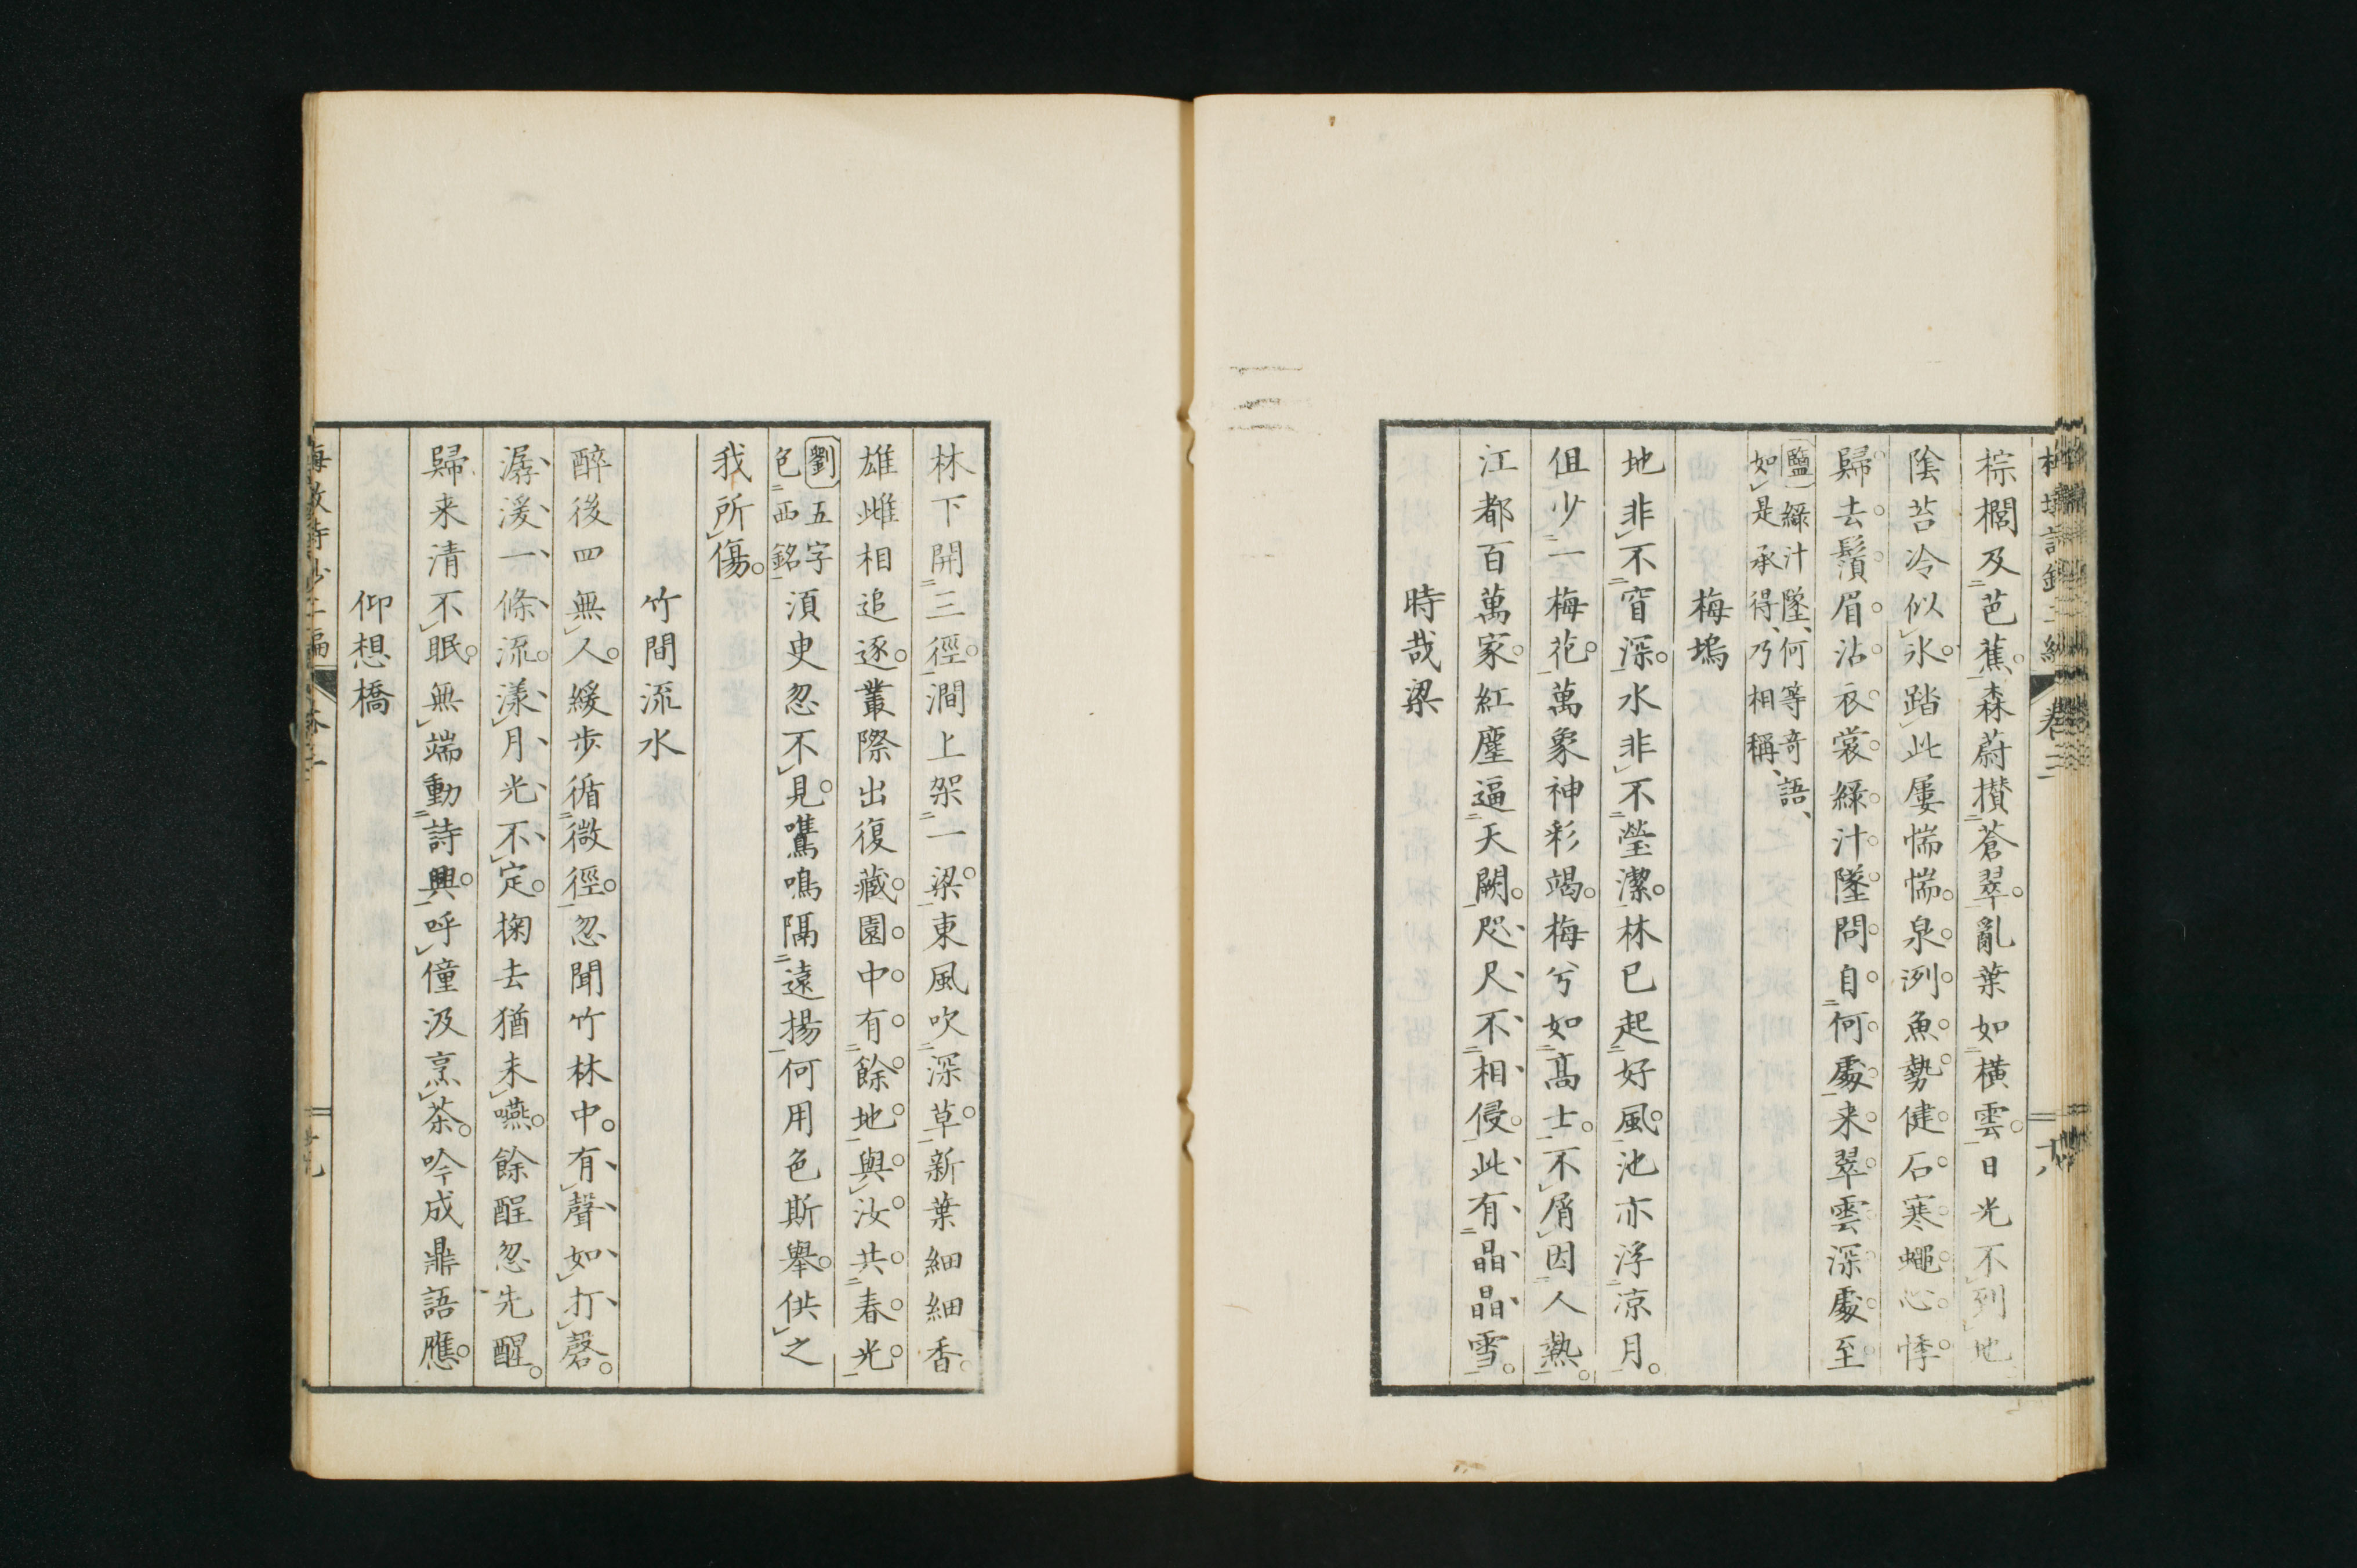 棕櫚及芭蕉森蔚攢蒼翠亂葉如橫雲日光不到地
陰苔冷似氷踏此屢惴惴泉洌魚勢健石寒蠅心悸
歸去鬚眉沾衣裳綠汁墜問自何處来翠雲深處至
鹽綠汁墜何等奇語
如是承得乃相稱
梅塢
地非不窅深水非不瑩潔林已起好風池亦浮凉月
但少一梅花萬象神彩竭梅兮如高士不屑因人熱
江都百萬家紅塵逼天闕咫尺不相侵此有晶晶雪
時哉梁
林下開三徑澗上架一梁東風吹深草新葉細細香
雄雌相追逐叢際出復藏園中有餘地與汝共春光
劉五字
色西銘
須臾忽不見鷕鳴隔遠揚何用色斯舉供之
我所傷
竹間流水
醉後四無人緩步循微徑忽聞竹林中有聲如打磬
潺湲一條流漾月光不定掬去猶未嚥餘酲忽先醒
歸来清不眠無端動詩興呼僮汲烹茶吟成鼎語應
仰想橋